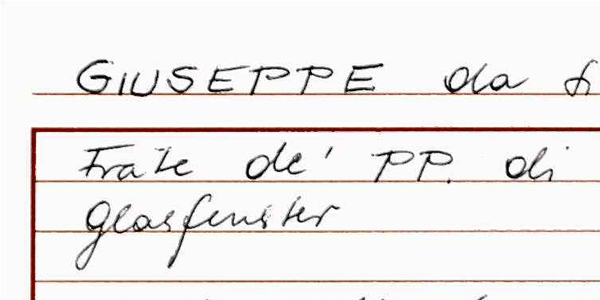 GIUSEPPE da
Frate de' PP. di
Glasfenster